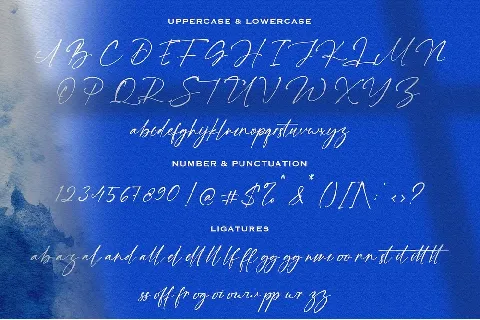 UPPERCASE & LOWERCASE
A B C D E F G H I J K L M N
O P Q R S T U V W X Y Z
abcdefghijklmnopqrstuvwxyz
NUMBER & PUNCTUATION
1234567890 ! @ # $ % ^ & * () [ ] \ : <> ?
LIGATURES
ab az al and all d dll ll lf ff gg gg nn oo rr st d dtt tt
ss off fr og oi our pp ur zz